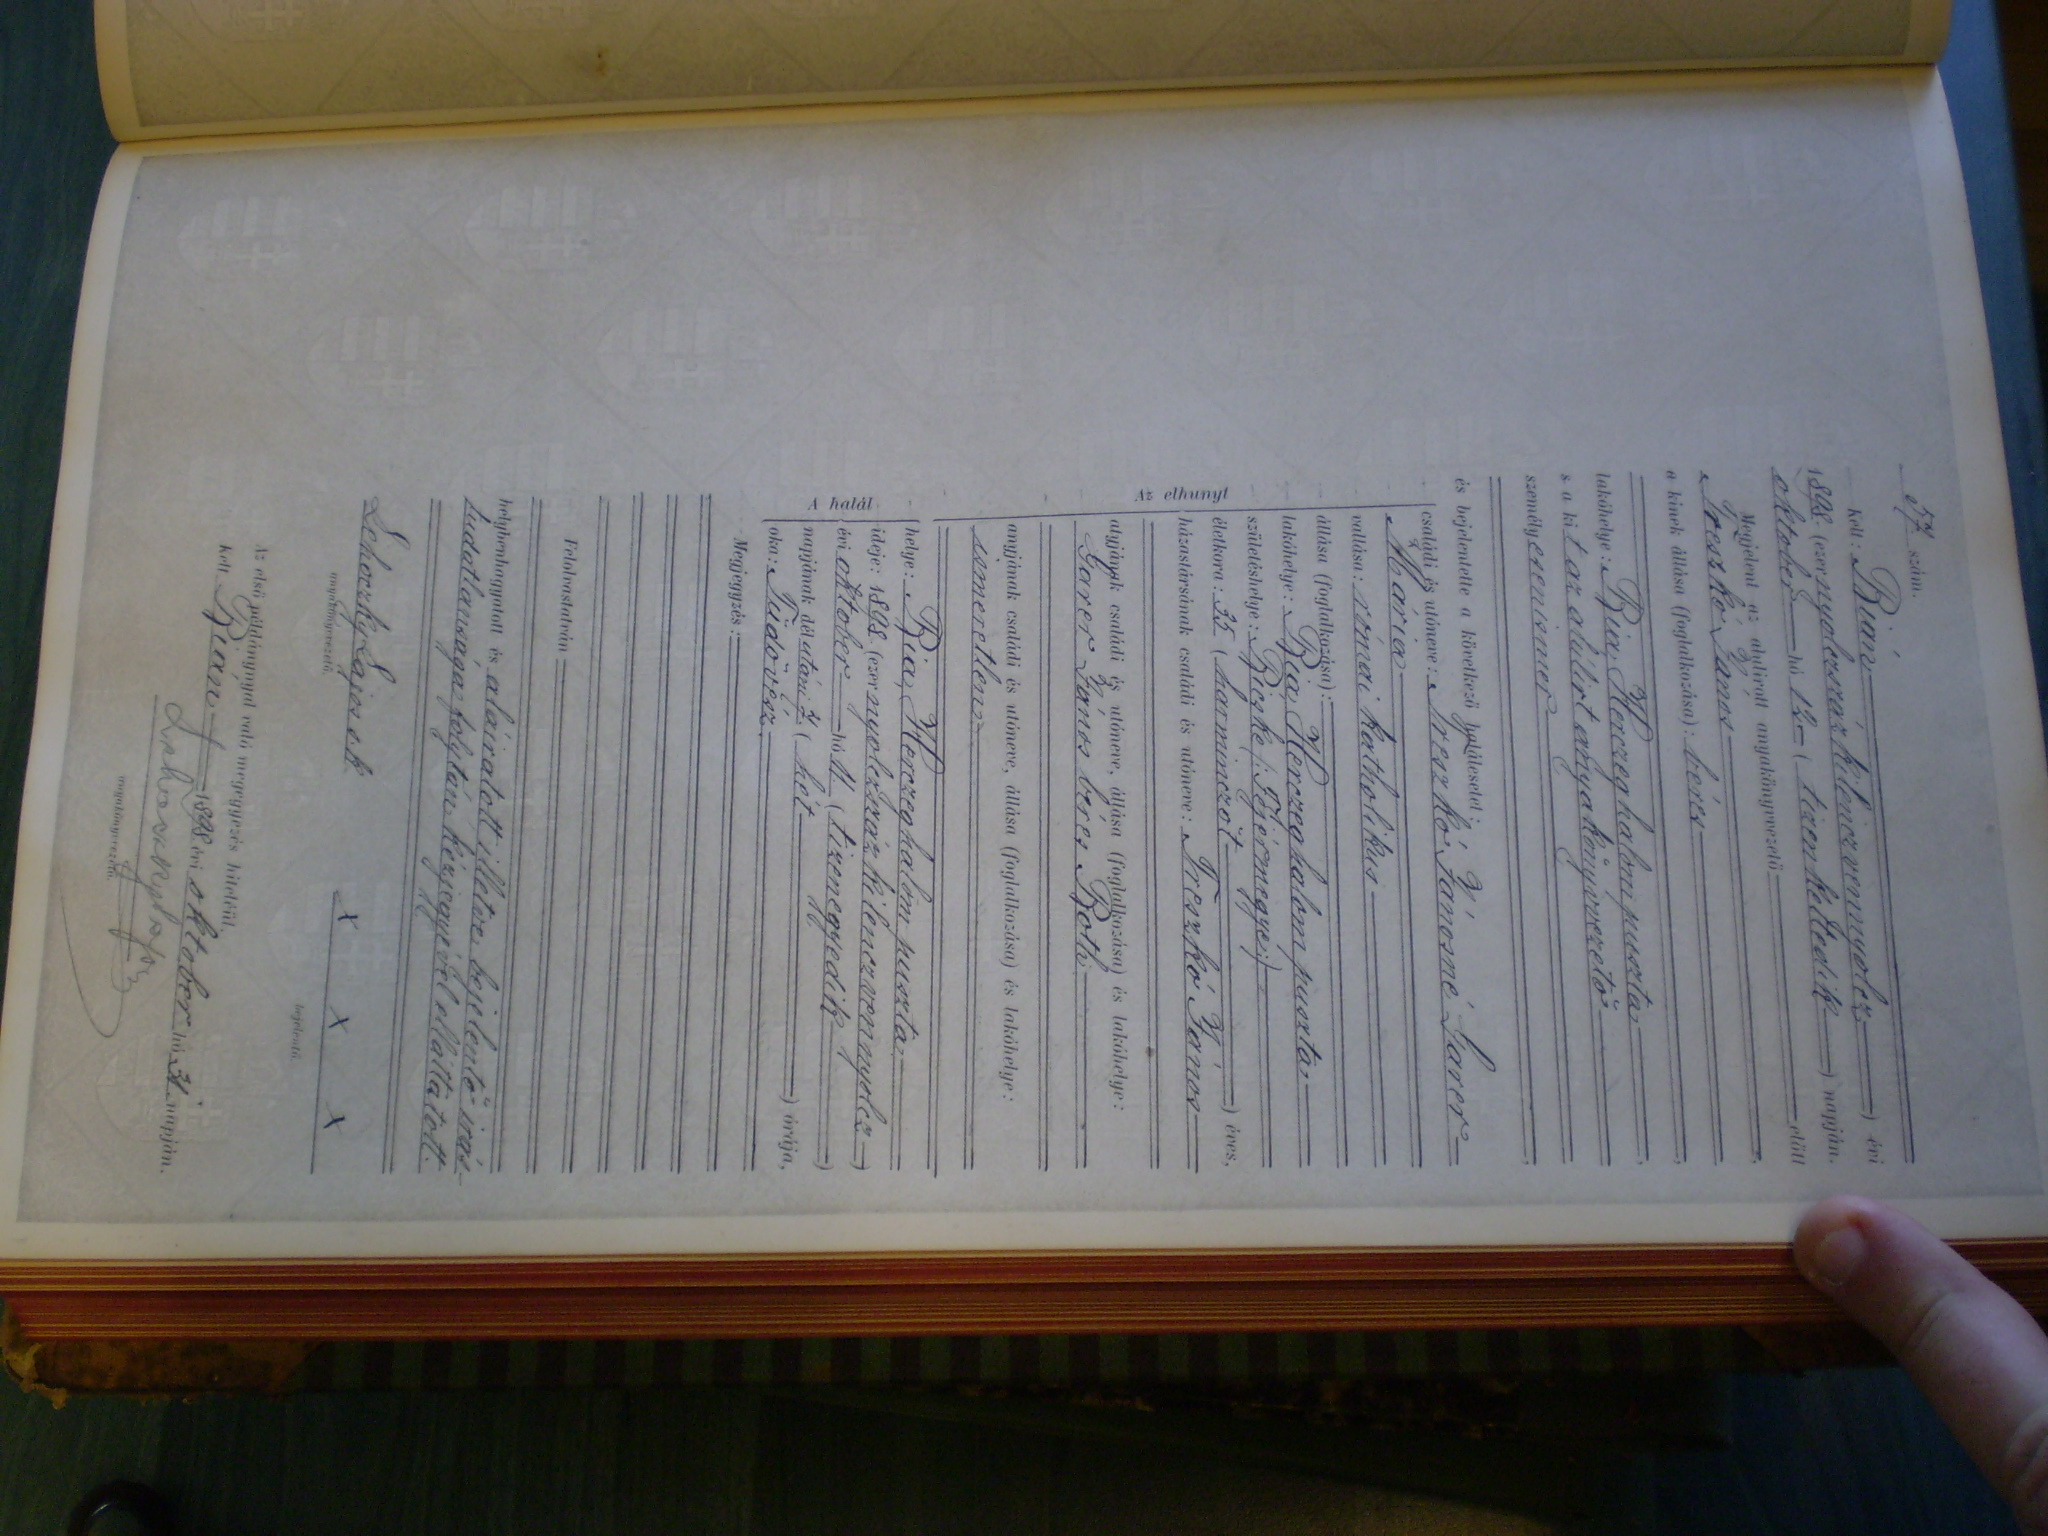 57. szám.
Kelt: Bián, 
1898. (ezernyolczszázkilenczvennyolcz) évi
október hó 12 (tizenkettedik) napján.
Megjelent az alulirt anyakönyvvezető előtt
Treszkó János,
a kinek állása (foglalkozása): béres,
lakóhelye: Bia, Herczeghalom puszta,
s a kit az alulírt anyakönyvvezető
személyesen ismer,
és bejelentette a következő halálesetet:
Az elhunyt
családi és utóneve: Treszkó Jánosné Garer
Mária
vallása: római katholikus
állása (foglalkozása):
lakóhelye: Bia, Herczeghalom puszta
születéshelye: Bicske (: Fejérmegye :)
életkora: 35 (harminczöt) éves,
házastársának családi és utóneve: Treszkó János
atyjának családi és utóneve, állása (foglalkozása) és lakóhelye:
Garer János béres
anyjának családi és utóneve, állása (foglalkozása) és lakóhelye:
ismeretlen
A halál
helye: Bia, Herczeghalom puszta
ideje: 1898. (ezernyolczszázkilenczvennyolcz)
évi október hó 11 (tizenegyedik)
napjának délutáni 2 (két) órája,
oka: Tüdővész
Megjegyzés:
Felolvastatván
helybenhagyatott és aláiratott illetve bejelentő irás-
tudatlansága folytán kézjegyével elláttatott.
Lehoczky Lajos s.k. x x x
anyakönyvvezető. bejelentő
Az első példánynyal való megegyezés hiteléül,
kelt Bián 1898 évi október hó 31 napján.
Lehoczky Lajos
anyakönyvvezető.